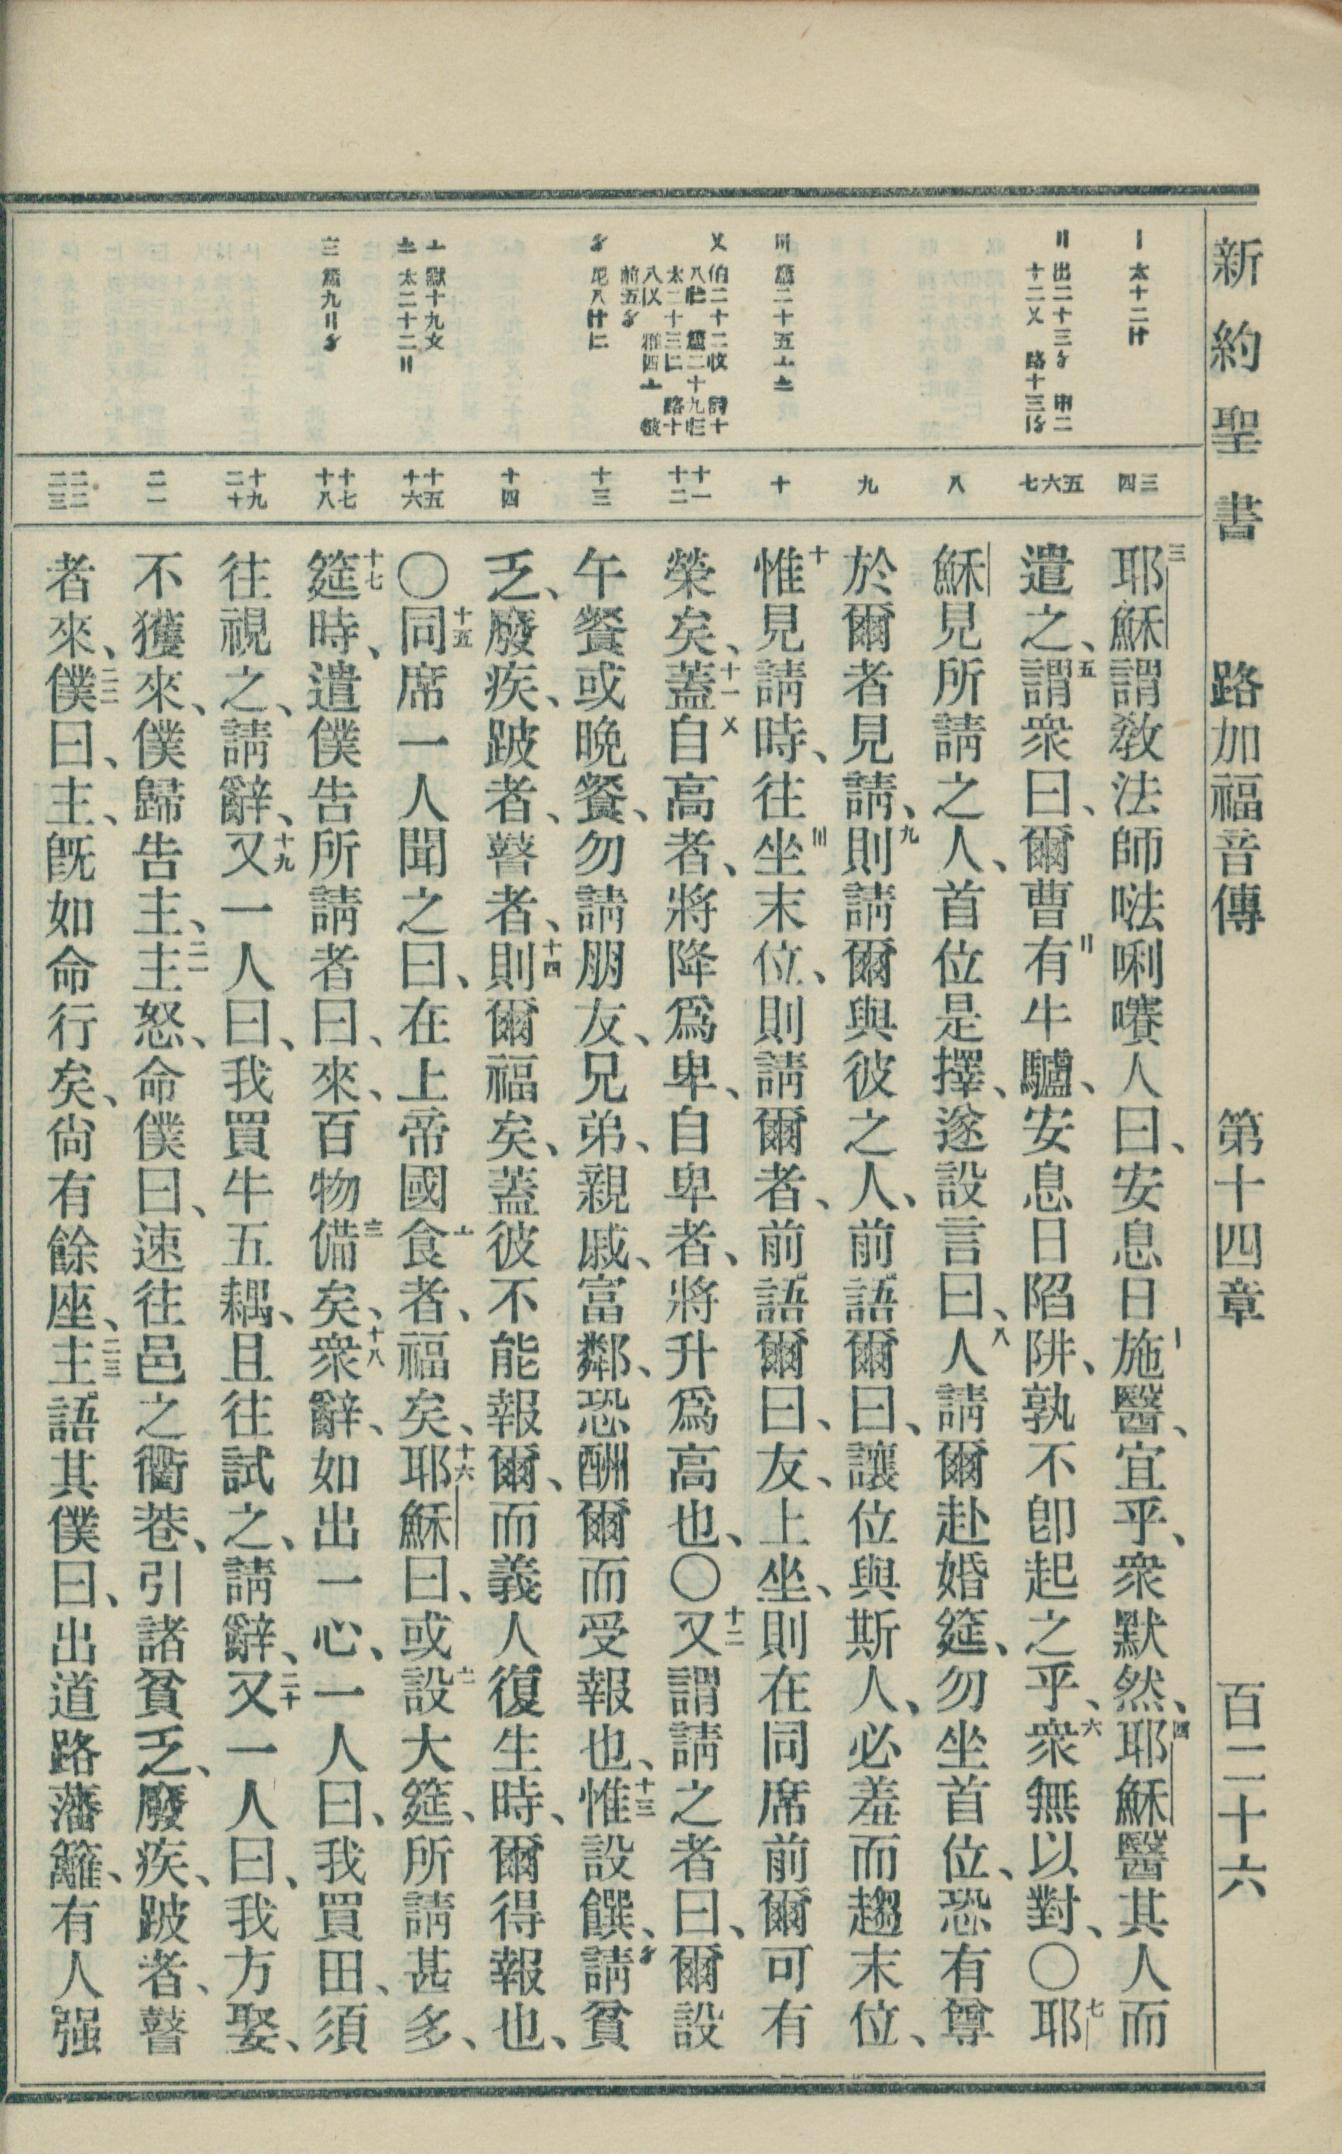 新約聖書 路加福音傳 第十四章 百二十六
三四
五六七
八
九
十
十一十二
十三
十四
十五十六
十七十八
十九二十
二一
二二二三
三耶穌謂教法師㗙唎㘔人曰、安息日施醫、宜乎、衆默然、四耶穌醫其人而
遣之、五謂衆曰、爾曹有牛驢、安息日陷阱、孰不卽起之乎、六衆無以對、〇七耶
穌見所請之人、首位是擇、遂設言曰、八人請爾赴婚筵、勿坐首位、恐有尊
於爾者見請、九則請爾與彼之人、前語爾曰、讓位與斯人、必羞而趨末位、
十惟見請時、往坐末位、則請爾者、前語爾曰、友、上坐、則在同席前爾可有
榮矣、十一蓋自高者、將降爲卑、自卑者、將升爲高也、〇十二又謂請之者曰、爾設
午餐或晚餐、勿請朋友、兄弟、親戚、富鄰、恐酬爾而受報也、十三惟設饌、請貧
乏、廢疾、跛者、瞽者、十四則爾福矣、蓋彼不能報爾、而義人復生時、爾得報也、
〇十五同席一人聞之曰、在上帝國食者、福矣、十六耶穌曰、或設大筵、所請甚多、
十七筵時、遣僕告所請者曰、來、百物備矣、十八衆辭、如出一心、一人曰、我買田、須
往視之、請辭、十九又一人曰、我買牛五耦、且往試之、請辭、二十又一人曰、我方娶、
不獲來、僕歸告主、二一主怒、命僕曰、速往邑之衢巷、引諸貧乏、廢疾、跛者、瞽
者來、二二僕曰、主、旣如命行矣、尙有餘座、二三主語其僕曰、出道路藩籬、有人强